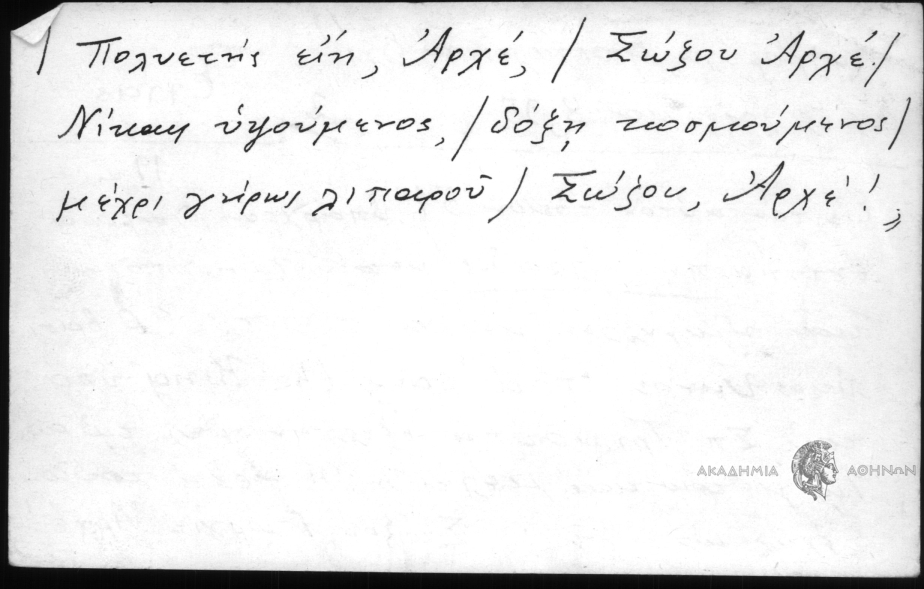 / Πολυετής είη, Ἀρχέ, / Σώζου Ἀρχέ! /
Νίκαις ὑψούμενος, / δόξῃ κοσμούμενος /
μέχρι γήρως λιπαροῦ / Σώζου, Ἀρχέ! »
ΑΚΑΔΗΜΙΑ ΑΘΗΝΩΝ